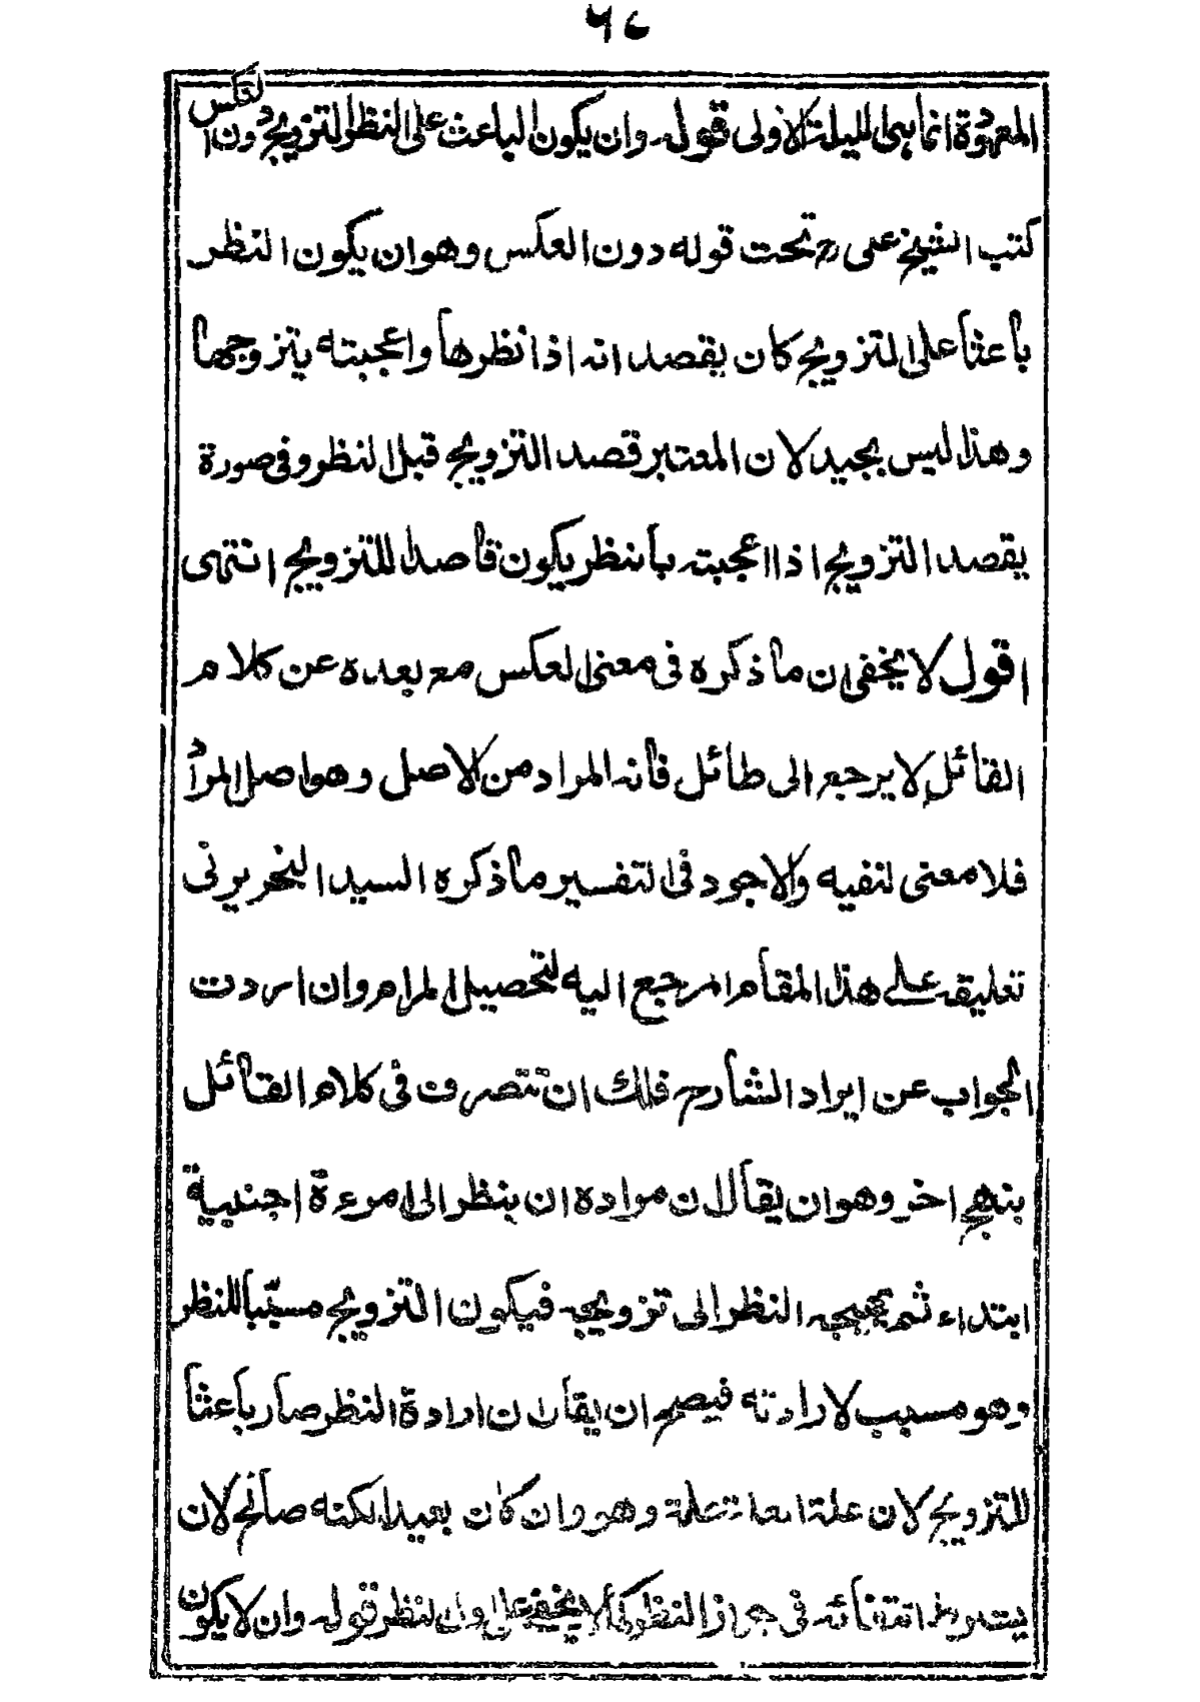 ٦٨
المعهودة انما هى الليلة الاولى قوله وان يكون الباعث على النظر التزويج دون العكس
كتب الشيخ على رح تحت قوله دون العكس وهو ان يكون النظر
باعثا على التزويج كان يقصد انه اذا نظرها واعجبته يتزوجها
وهذا ليس بجيد لان المعتبر قصد التزويج قبل النظر وفى صورة
يقصد التزويج اذا اعجبته بالنظر يكون قاصدا للتزويج انتهى
اقول لا يخفى ان ما ذكره فى معنى العكس مع بعده عن كلام
القائل لا يرجع الى طائل فانه المراد من الاصل وهو اصل المراد
فلا معنى لنفيه والاجود فى التفسير ما ذكره السيد النحرير فى
تعليقه على هذا المقام ارجع اليه لتحصيل المرام وان اردت
الجواب عن ايراد الشارح فلك ان تتصرف فى كلام القائل
بنهج اخر وهو ان يقال ان مراده ان ينظر الى امرءة اجنبية
ابتداء ثم يهيجه النظر الى تزويجه فيكون التزويج مسببا للنظر
وهو مسبب لارادته فيصح ان يقال ان ارادة النظر صار باعثا
للتزويج لان علة العلة علة وهو وان كان بعيدا لكنه صالح لان
يشترط انتفائه فى جواز النظر كما لا يخفى على اولى النظر قوله وان لا يكون